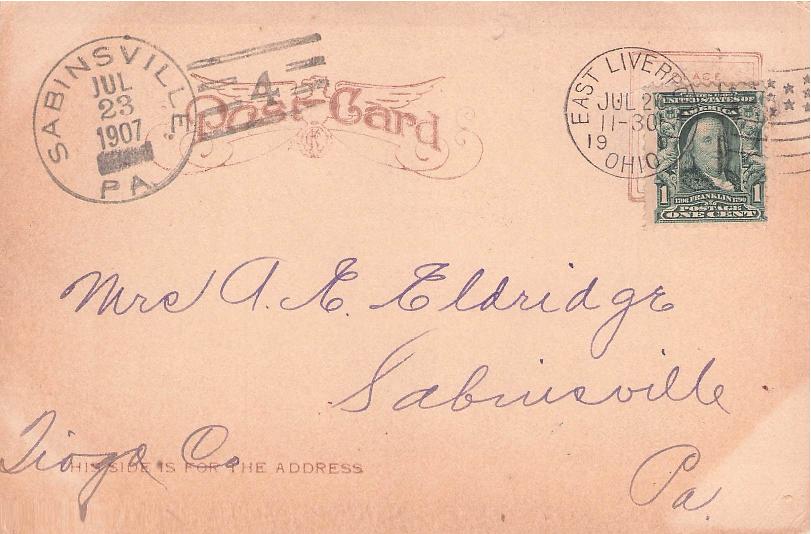 SABINSVILLE.
JUL
23
1907
PA.
4
Post-Card
EAST LIVER
JUL 2
11-30
19
OHIO
UNITED STATES OF
AMERICA
1 1
FRANKLIN
POSTAGE
ONE CENT
Mrs A. E. Eldridge
Sabinsville
Tioga Co
THIS SIDE IS FOR THE ADDRESS
Pa.